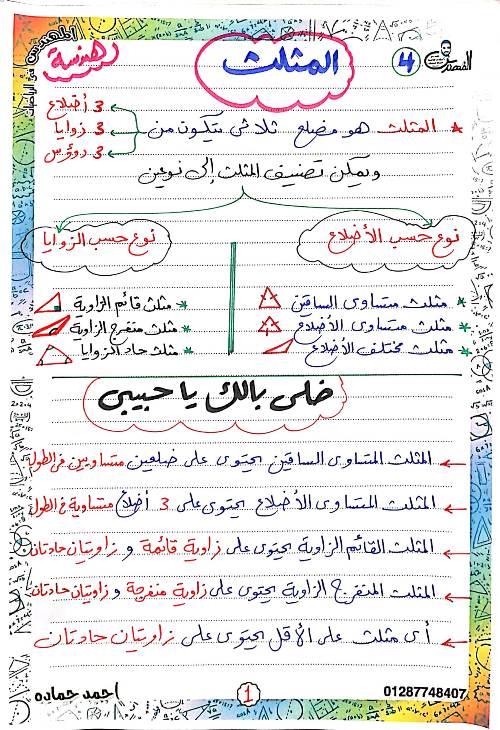 المهندس
4
المثلث
هندسة
المهندس في الرياضيات
* المثلث هو مضلع ثلاثى يتكون من
3 أضلاع
3 زوايا
3 رؤوس
ويمكن تصنيف المثلث إلى نوعين
نوع حسب الأضلاع
نوع حسب الزوايا
* مثلث متساوى الساقين
* مثلث متساوى الأضلاع
* مثلث مختلف الأضلاع
* مثلث قائم الزاوية
* مثلث منفرج الزاوية
* مثلث حاد الزوايا
خلى بالك يا حبيبى
← المثلث المتساوى الساقين يحتوى على ضلعين متساويين فى الطول
← المثلث المتساوى الأضلاع يحتوى على 3 أضلاع متساوية فى الطول
← المثلث القائم الزاوية يحتوى على زاوية قائمة و زاويتان حادتان
← المثلث المنفرج الزاوية يحتوى على زاوية منفرجة و زاويتان حادتان
← أى مثلث على الأقل يحتوى على زاويتان حادتان
01287748407
1
احمد حماده